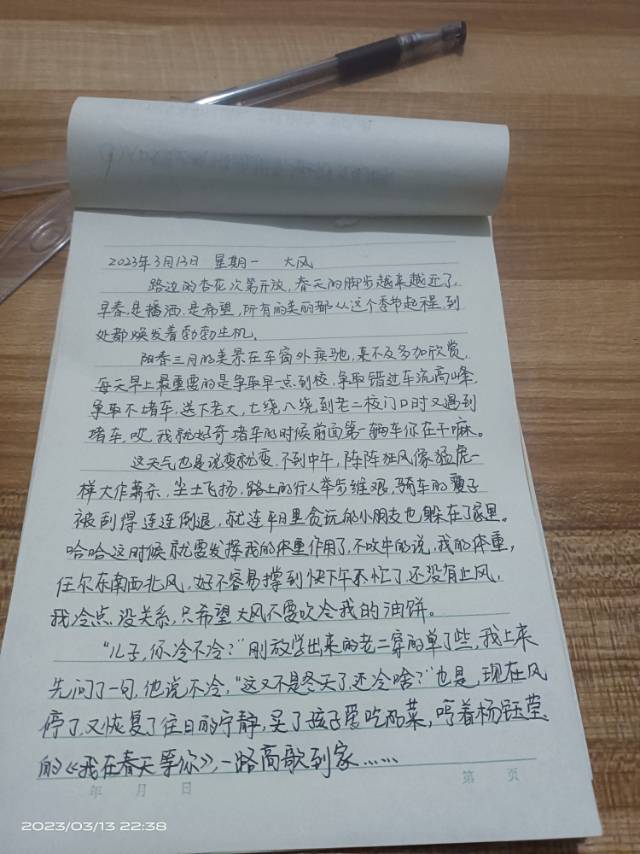 2023年3月13日 星期一 大风
路边的杏花次第开放，春天的脚步越来越近了，
早春，是播洒，是希望，所有的美丽都从这个季节起程，到
处都焕发着勃勃生机。
阳春三月的美景在车窗外乘驰，来不及多加欣赏，
每天早上最重要的是争取早一点到校，争取错过车流高峰，
争取不堵车，送下老大，七绕八绕到老二校门口时又遇到
堵车，哎，我就好奇堵车的时候前面第一辆车你在干嘛。
这天气也是说变就变，不到中午，阵阵狂风像猛虎一
样大作，尘土飞扬，路上的行人举步维艰，骑车的
被刮得连连倒退，就连平日里贪玩的小朋友也躲在了家里。
哈哈这时候就要发挥我的体重作用了，不吹牛的说，我的体重，
任尔东南西北风，好不容易撑到快下午不忙了，还没有止风，
我冷点，没关系，只希望大风不要吹冷我的油饼。
“儿子，你冷不冷？”刚放学出来的老二穿的单了些，我上来
先问了一句，他说不冷，“这又不是冬天了，还冷啥？”也是，现在风
停了，又恢复了往日的宁静，买了孩子爱吃的菜，哼着杨钰莹
的《我在春天等你》，一路高歌到家……
年 月 日 第 页
2023/03/13 22:38